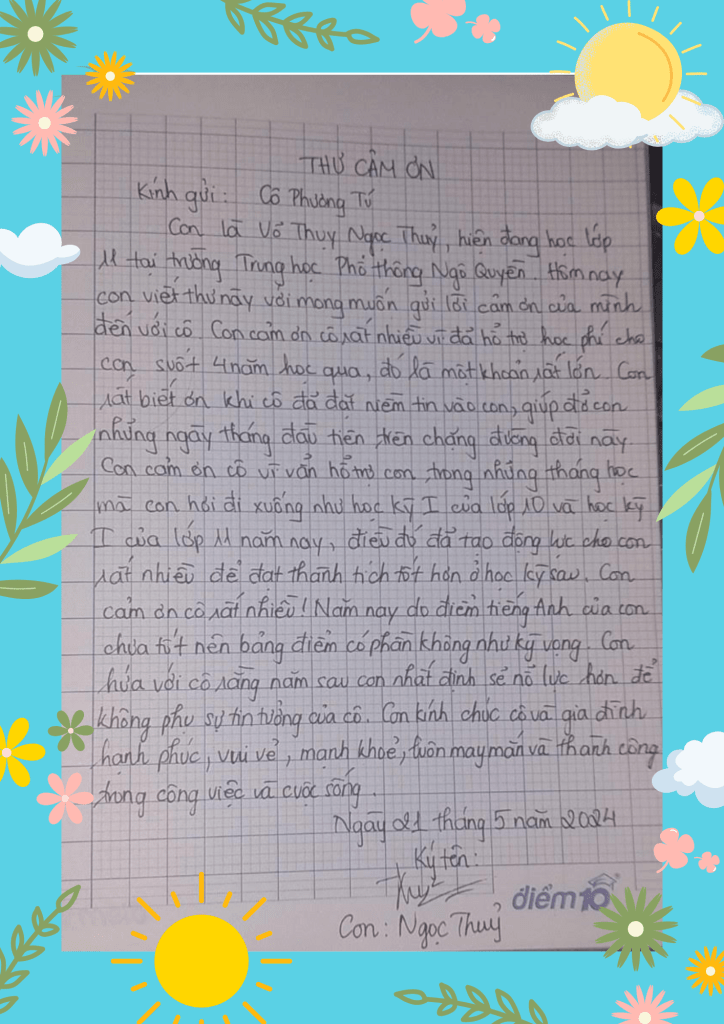 THƯ CẢM ƠN
Kính gửi: Cô Phương Tú
Con là Võ Thụy Ngọc Thuỷ, hiện đang học lớp
11 tại trường Trung học Phổ thông Ngô Quyền. Hôm nay
con viết thư này với mong muốn gửi lời cảm ơn của mình
đến với cô. Con cảm ơn cô rất nhiều vì đã hỗ trợ học phí cho
con suốt 4 năm học qua, đó là một khoản rất lớn. Con
rất biết ơn khi cô đã đặt niềm tin vào con, giúp đỡ con
những ngày tháng đầu tiên trên chặng đường đời này.
Con cảm ơn cô vì vẫn hỗ trợ con trong những tháng học
mà con hơi đi xuống như học kỳ I của lớp 10 và học kỳ
I của lớp 11 năm nay, điều đó đã tạo động lực cho con
rất nhiều để đạt thành tích tốt hơn ở học kỳ sau. Con
cảm ơn cô rất nhiều! Năm nay do điểm tiếng Anh của con
chưa tốt nên bảng điểm có phần không như kỳ vọng. Con
hứa với cô rằng năm sau con nhất định sẽ nỗ lực hơn để
không phụ sự tin tưởng của cô. Con kính chúc cô và gia đình
hạnh phúc, vui vẻ, mạnh khoẻ, luôn may mắn và thành công
trong công việc và cuộc sống.
Ngày 21 tháng 5 năm 2024
Ký tên:
Thuỷ
điểm10
Con: Ngọc Thuỷ